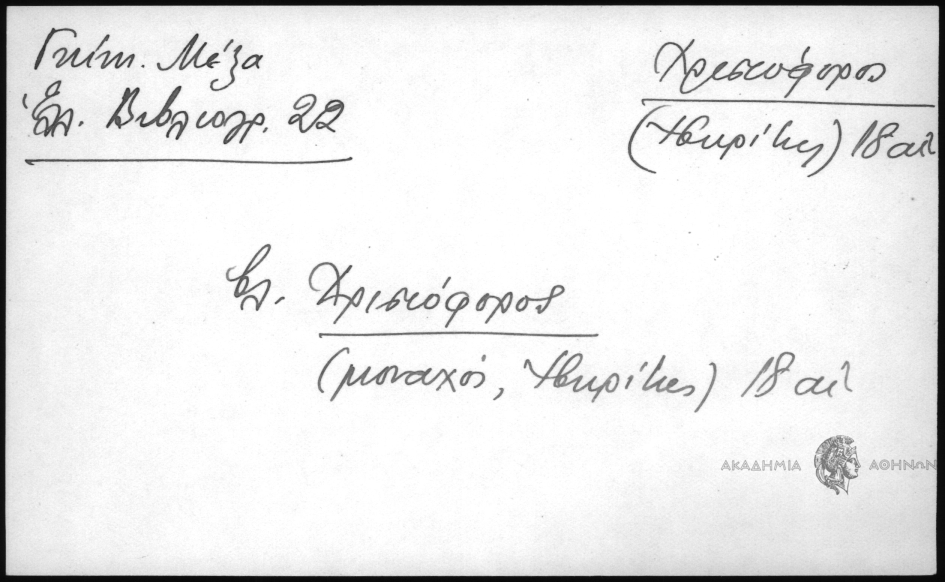 Γκίνη. Μέξα
Ἑλ. Βιβλιογρ. 22
Χριστόφορος
(Ἰβηρίτης) 18 αἰ
βλ. Χριστόφορος
(μοναχός, Ἰβηρίτης) 18 αἰ
ΑΚΑΔΗΜΙΑ ΑΘΗΝΩΝ